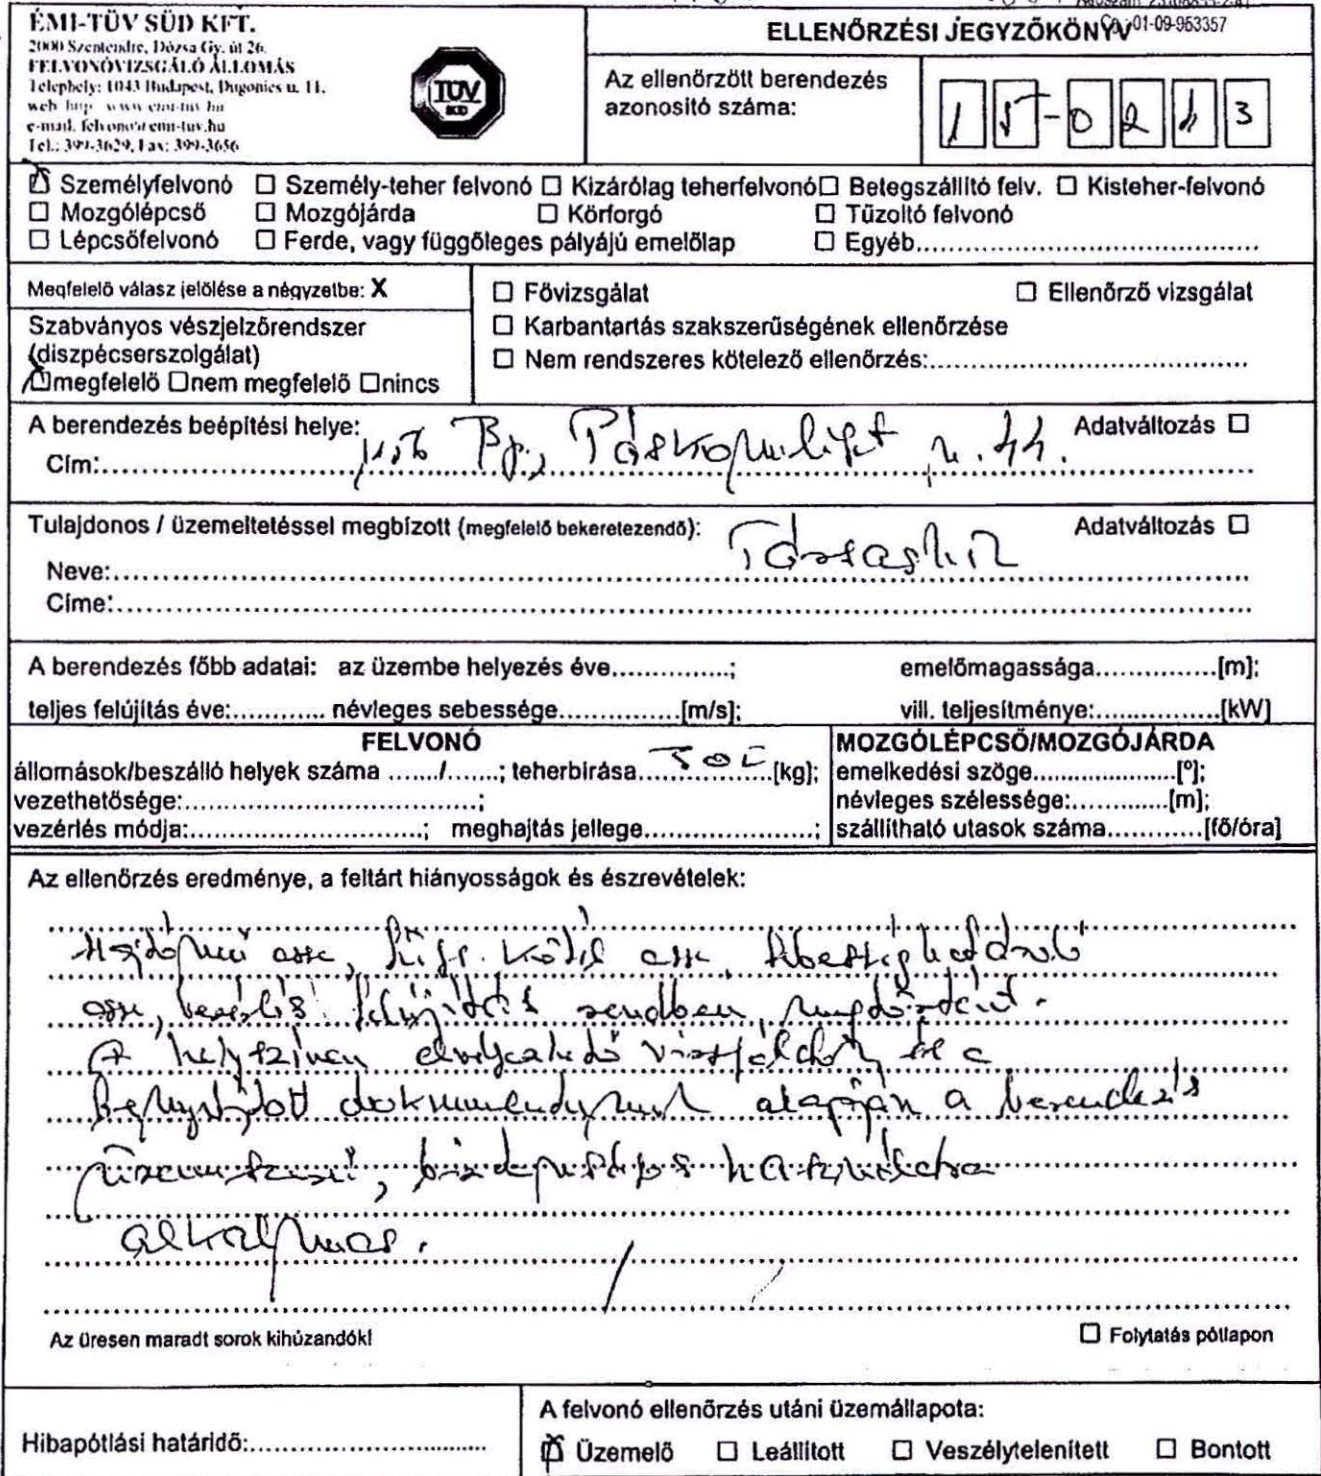 ÉMI-TÜV SÜD KFT.
2000 Szentendre, Dózsa Gy. út 26.
FELVONÓVIZSGÁLÓ ÁLLOMÁS
Telephely: 1043 Budapest, Dugonics u. 11.
web http www emi-tuv hu
e-mail. felvono@emi-tuv.hu
Tel.: 399-3629, Fax: 399-3656
TÜV
SÜD
01-09-953357
ELLENŐRZÉSI JEGYZŐKÖNYV
Az ellenőrzött berendezés
azonosító száma:
☒ Személyfelvonó ☐ Személy-teher felvonó ☐ Kizárólag teherfelvonó ☐ Betegszállító felv. ☐ Kisteher-felvonó
☐ Mozgólépcső ☐ Mozgójárda ☐ Körforgó ☐ Tűzoltó felvonó
☐ Lépcsőfelvonó ☐ Ferde, vagy függőleges pályájú emelőlap ☐ Egyéb..........
Megfelelő válasz jelölése a négyzetbe: X
Szabványos vészjelzőrendszer
(diszpécserszolgálat)
☒megfelelő ☐nem megfelelő ☐nincs
☐ Fővizsgálat ☐ Ellenőrző vizsgálat
☐ Karbantartás szakszerűségének ellenőrzése
☐ Nem rendszeres kötelező ellenőrzés:..........
A berendezés beépítési helye: Adatváltozás ☐
Cím: Bp., Páskomliget u. 44.
Tulajdonos / üzemeltetéssel megbízott (megfelelő bekeretezendő): Adatváltozás ☐
Neve: Társasház
Címe:..........
A berendezés főbb adatai: az üzembe helyezés éve..........; emelőmagassága..........[m];
teljes felújítás éve:.......... névleges sebessége..........[m/s]; vill. teljesítménye:..........[kW]
FELVONÓ
állomások/beszálló helyek száma ......./.......; teherbírása..........[kg];
vezethetősége:..........;
vezérlés módja:..........; meghajtás jellege..........;
MOZGÓLÉPCSŐ/MOZGÓJÁRDA
emelkedési szöge..........[º];
névleges szélessége:..........[m];
szállítható utasok száma..........[fő/óra]
Az ellenőrzés eredménye, a feltárt hiányosságok és észrevételek:
Hajtómű csere, függ. kötél csere, sebességhatároló
csere, vezérlés felújítás rendben megtörtént.
A helyszínen elvégzett és a
benyújtott dokumentumok alapján a berendezés
üzemszerű, használatra
alkalmas.
Az üresen maradt sorok kihúzandók!
☐ Folytatás pótlapon
Hibapótlási határidő:..........
A felvonó ellenőrzés utáni üzemállapota:
☒ Üzemelő ☐ Leállított ☐ Veszélytelenített ☐ Bontott